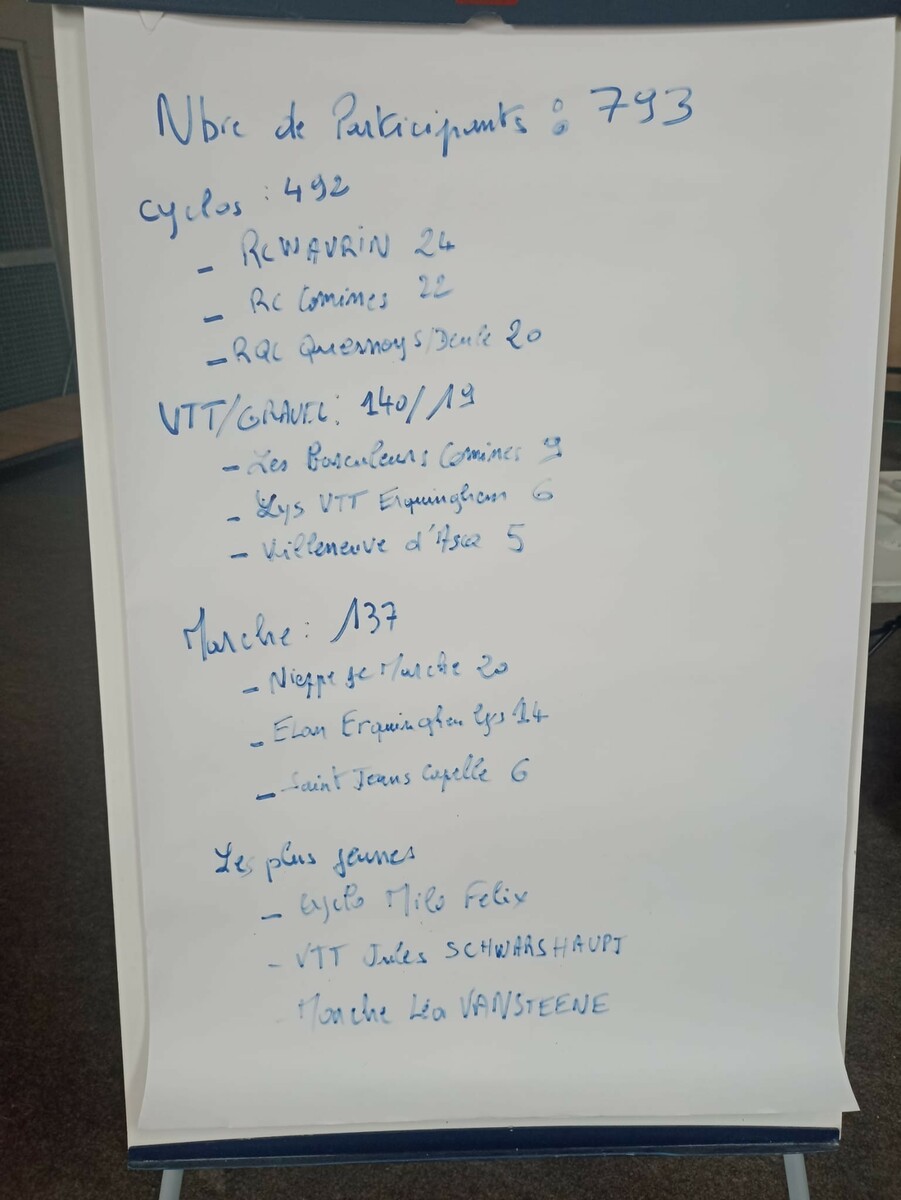 Nbre de Participants : 793
Cyclos : 492
- RC WAVRIN 24
- RC Comines 22
- RQC Quesnoy S/Deule 20
VTT/GRAVEL: 140/19
- Les Basculeurs Comines 9
- Lys VTT Erquinghem 6
- Villeneuve d'Ascq 5
Marche: 137
- Nieppe je Marche 20
- Elan Erquinghem Lys 14
- Saint Jeans Capelle 6
Les plus jeunes
- Cyclo Milo Felix
- VTT Jules SCHWARSHAUPT
Marche Léa VANSTEENE